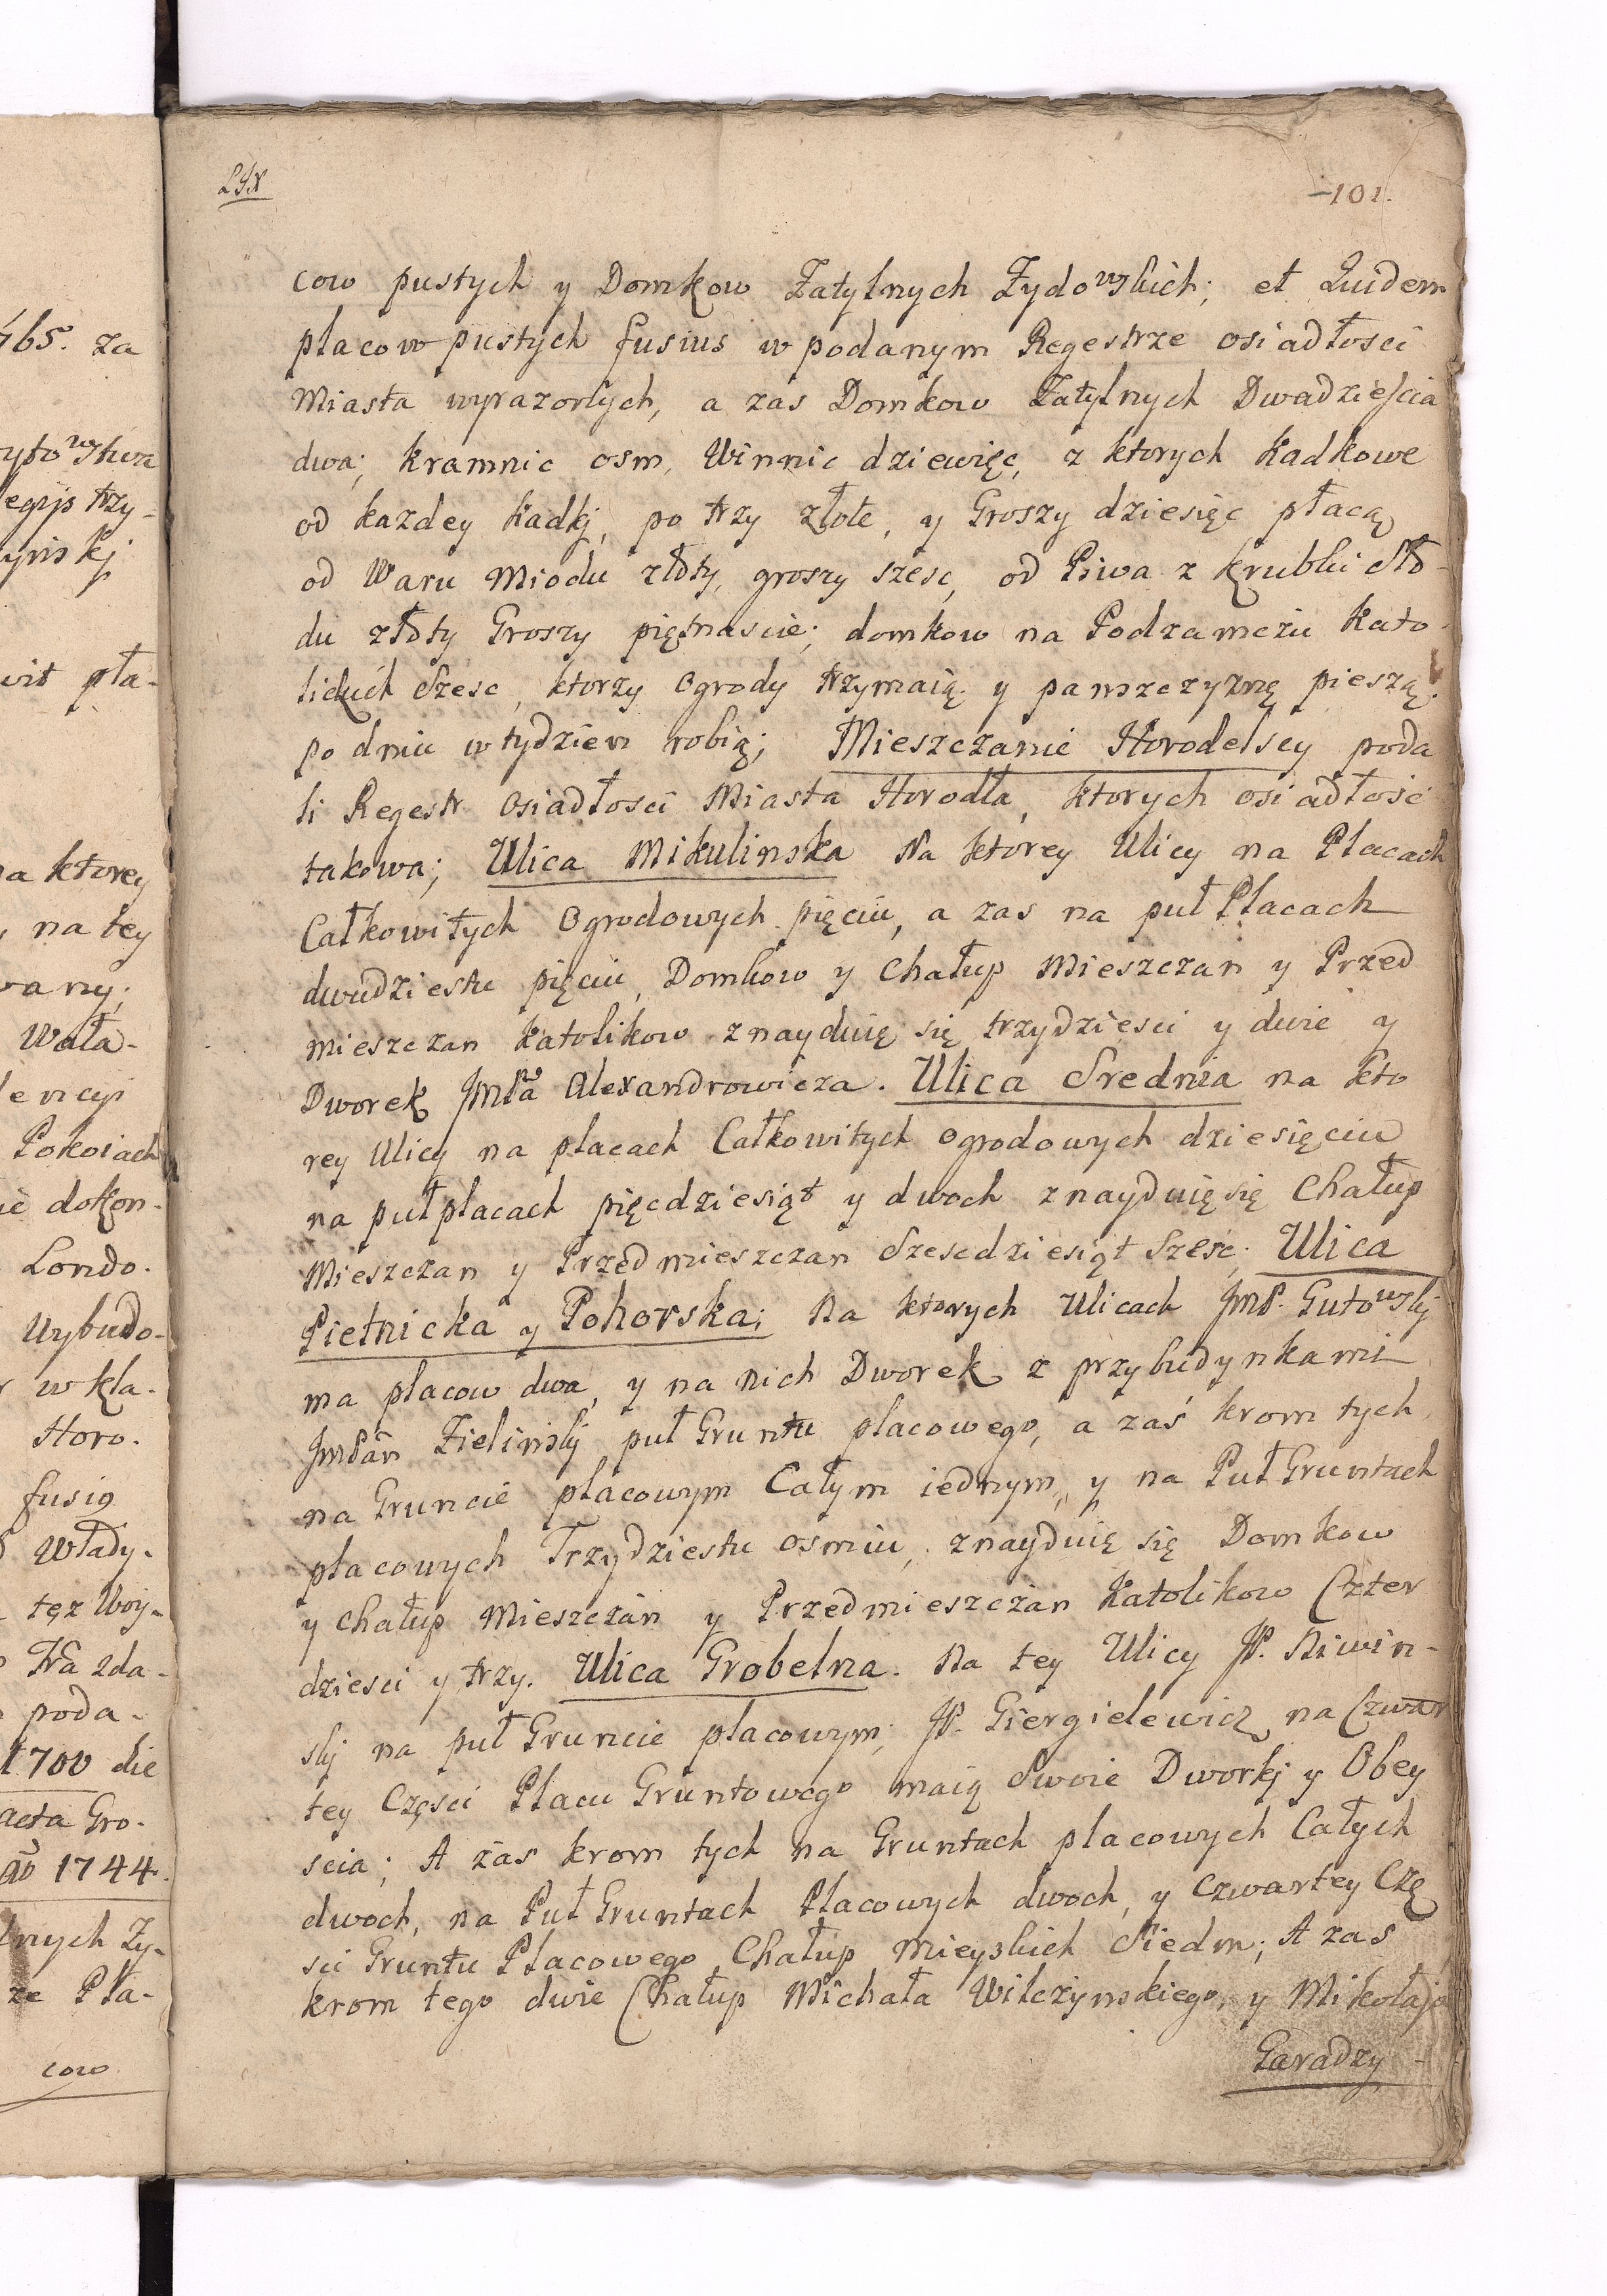 465. za
egijs trzy-
pła-
na ktorey
, na tey
Wała-
Pokoiach
dokon-
Londo-
Wybudo-
w kla-
Horo-
fusiq
Włady-
tęż Woy-
zda-
poda-
1700 die
acta Gro-
1744.
lnych Zy-
ze Pla-
cow
101.
cow pustych y Domkow Zatylnych Zydowskich; et Quidem
placow pustych fusius w podanym Regestrze osiadłosci
Miasta wyrazonych, a zas Domkow Zatylnych Dwadziescia
dwa; kramnic osm, Winnic dziewięc, z ktorych kadkowe
od kazdey kadkj, po trzy złote, y Groszy dziesięc płacą
od Waru Miodu złoty, groszy szesc, od Piwa z krubki Sło-
du złoty Groszy piętnascie; domkow na Podzamczu kato-
lickich Szesc, ktorzy Ogrody trzymaią y panszczyznę pieszą
po dniu w tydzien robią; Mieszczanie Horodelscy poda
li Regestr Osiadłosci Miasta Horodła, ktorych osiadłość
takowa; Ulica Mikulinska Na ktorey Ulicy na Placach
Całkowitych Ogrodowych pięciu, a zas na puł Placach
dwudziestu pięciu, Domkow y Chałup Mieszczan y Przed
mieszczan katolikow znayduię się trzydziesci y dwie y
Dworek JmPa Alexandrowicza. Ulica Srednia na kto
rey Ulicy na placach Całkowitych ogrodowych dziesięciu
na puł placach pięcdziesiąt y dwoch znayduię się Chałup
Mieszczan y Przedmieszczan Szescdziesiąt Szesc; Ulica
Pietnicka y Pohorska; Na ktorych Ulicach JmP. Gutowskj
ma placow dwa, y na nich Dworek z przybudynkami
JmPan Zielinskj puł Gruntu placowego, a zaś krom tych
na Gruncie placowym Całym iednym, y na Puł Gruntach
placowych Trzydziestu osmiu, znayduię się Domkow
y chałup Mieszczan y Przedmieszczan Katolikow Czter
dziesci y trzy. Ulica Grobelna. Na tey Ulicy JP. Niwin-
skj na puł Gruncie placowym; JP. Giergielewicz na Czwar
tey Częsci Placu Gruntowego maią Swoie Dworkj y Obey
scia; A zas krom tych na Gruntach placowych Całych
dwoch, na Puł Gruntach Placowych dwoch, y Czwartey Czę
sci Gruntu Placowego Chałup Mieyskich Siedm; A zas
krom tego dwie Chałup Michała Wilczynskiego, y Mikołaja
Garadzy-